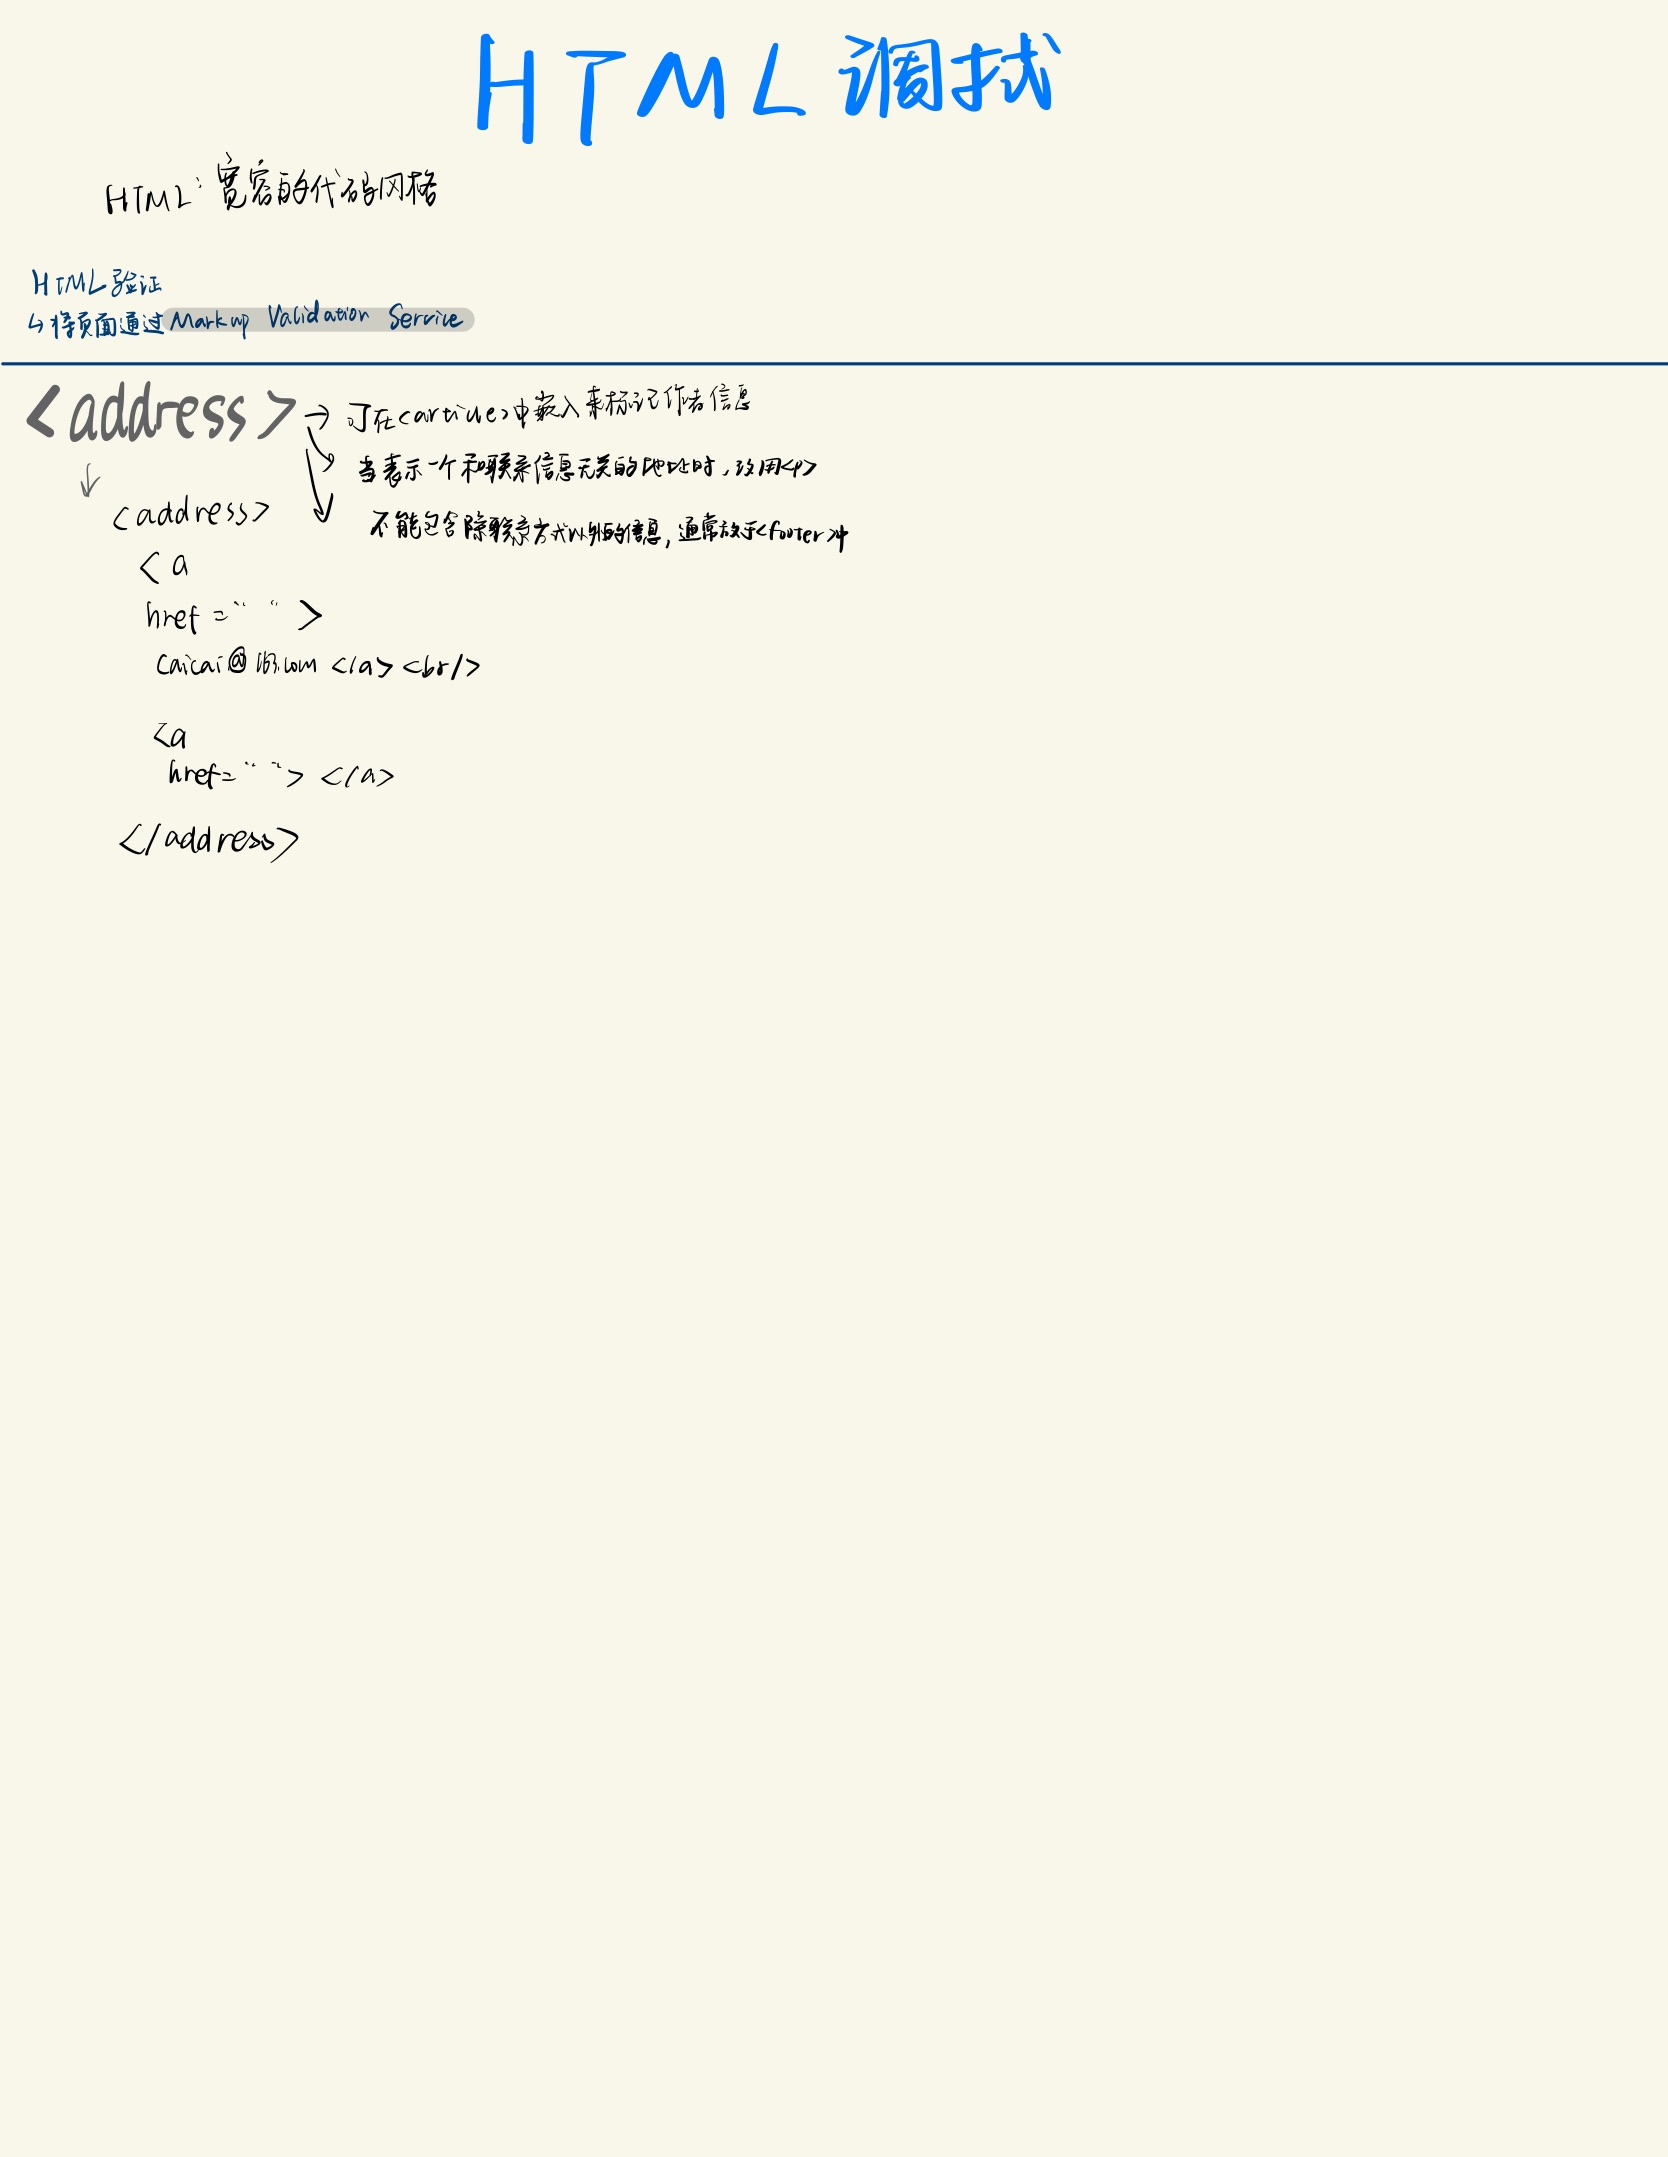 HTML 调拭
HTML: 宽容的代码风格
HTML 验证
↳ 将页面通过 Markup Validation Service
<address> → 可在<article>中嵌入来标记作者信息
当表示一个和联系信息无关的地址时，改用<p>
不能包含除联系方式以外的信息，通常放于<footer>中
<address>
<a
href = “ “ >
caicai@163.com </a> <br/>
<a
href= “ ” > </a>
</address>